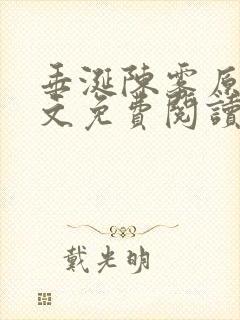 垂涎陳霧原
文免費閱讀
戴光明